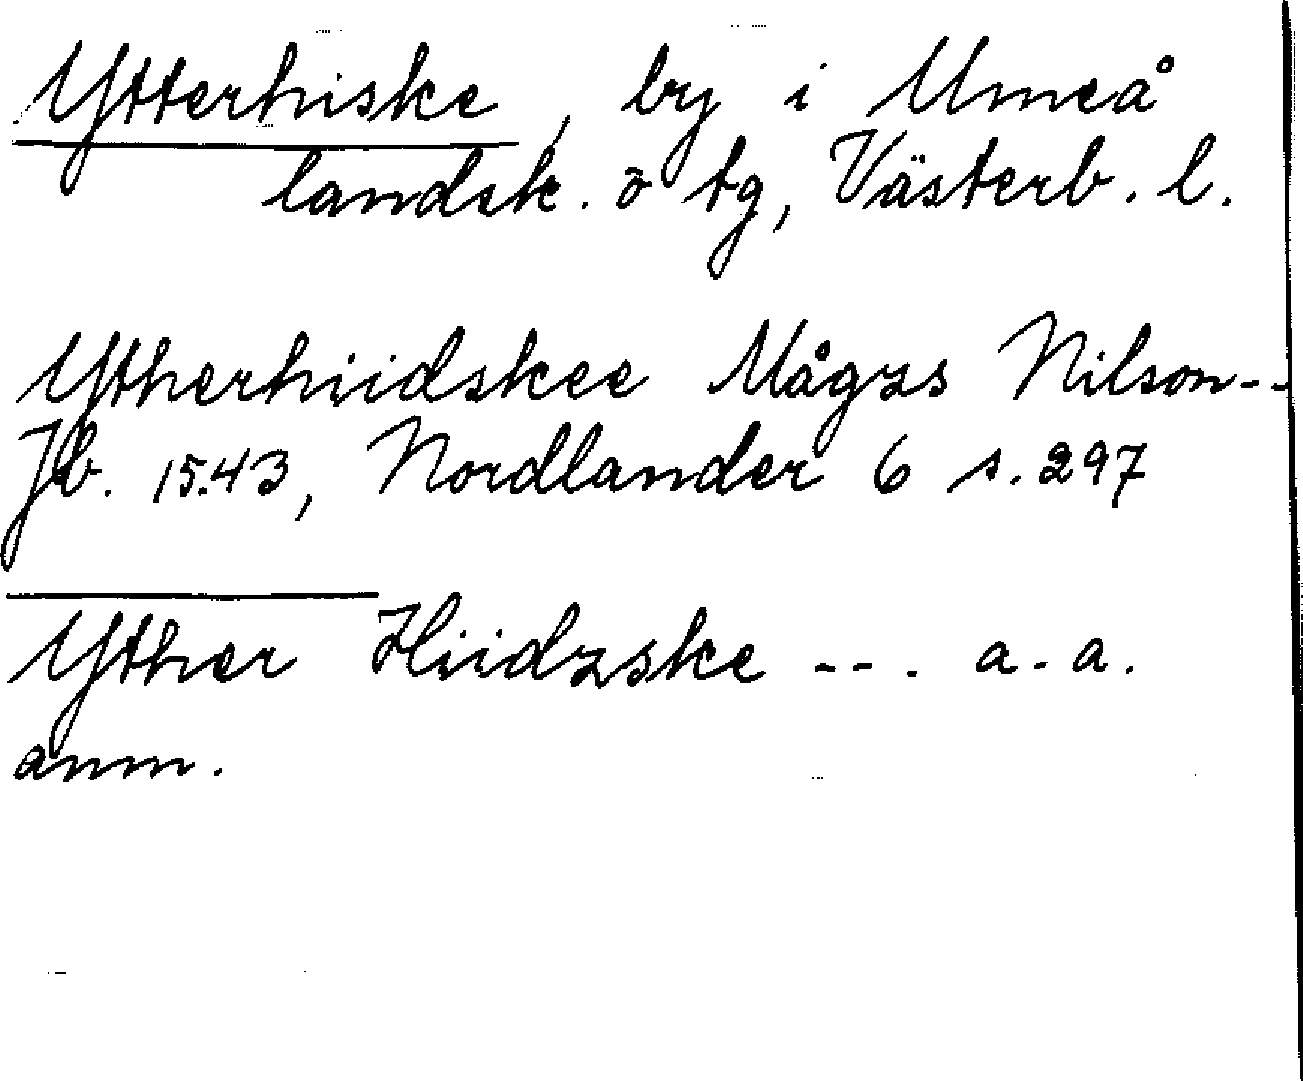 Ytterhiske, by i Umeå
landsk. o tg, Västerb. l.
Ytherhiidskee Mågzs Nilson--
Jb. 1543, Nordlander 6 s. 297
Yther Hiidzske --. a. a.
anm.